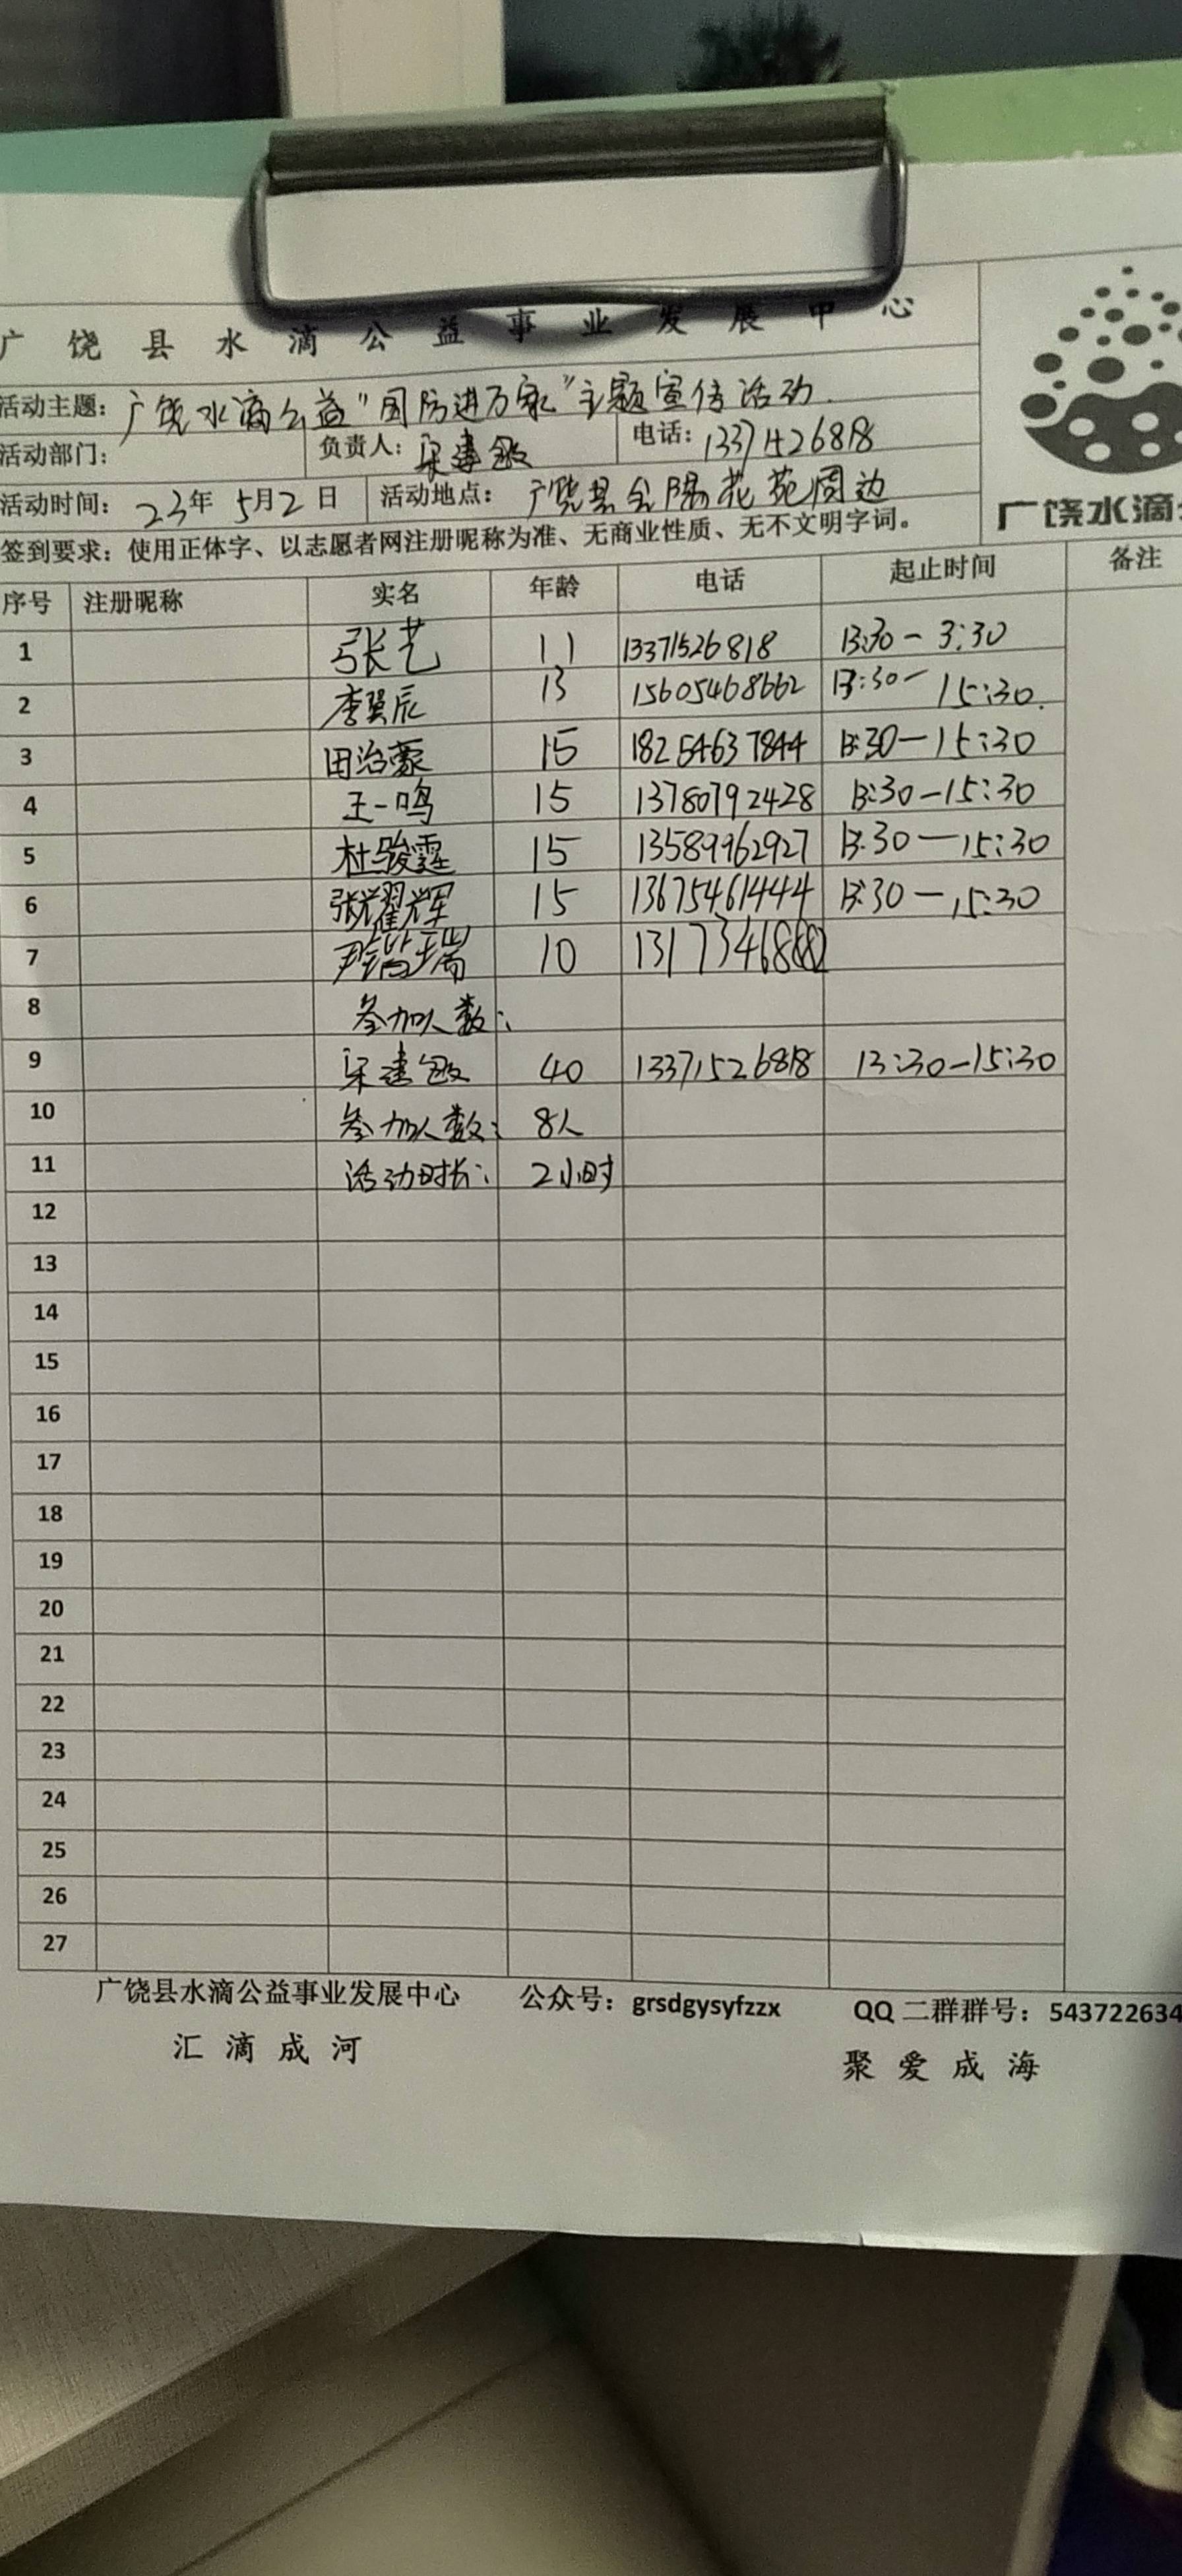 广饶县水滴公益事业发展中心
活动主题：广饶水滴公益"国防进万家"主题宣传活动.
活动部门： 负责人：宋建敏 电话：13371426818
活动时间：23年5月2日 活动地点：广饶县金阳花苑周边
广饶水滴
签到要求：使用正体字、以志愿者网注册昵称为准、无商业性质、无不文明字词。
序号 注册昵称 实名 年龄 电话 起止时间 备注
1 张艺 11 13371526818 13:30-3:30
2 李昊辰 13 15605468662 13:30-15:30.
3 田治蒙 15 18254637844 13:30-15:30
4 王一鸣 15 13780792428 13:30-15:30
5 杜骏霆 15 13589962927 13:30-15:30
6 张耀辉 15 13675461444 13:30-15:30
7 10
8 参加人数：
9 宋建敏 40 13371526818 13:30-15:30
10 参加人数： 8人
11 活动时长： 2小时
12
13
14
15
16
17
18
19
20
21
22
23
24
25
26
27
广饶县水滴公益事业发展中心 公众号：grsdgysyfzzx QQ 二群群号：543722634
汇滴成河 聚爱成海